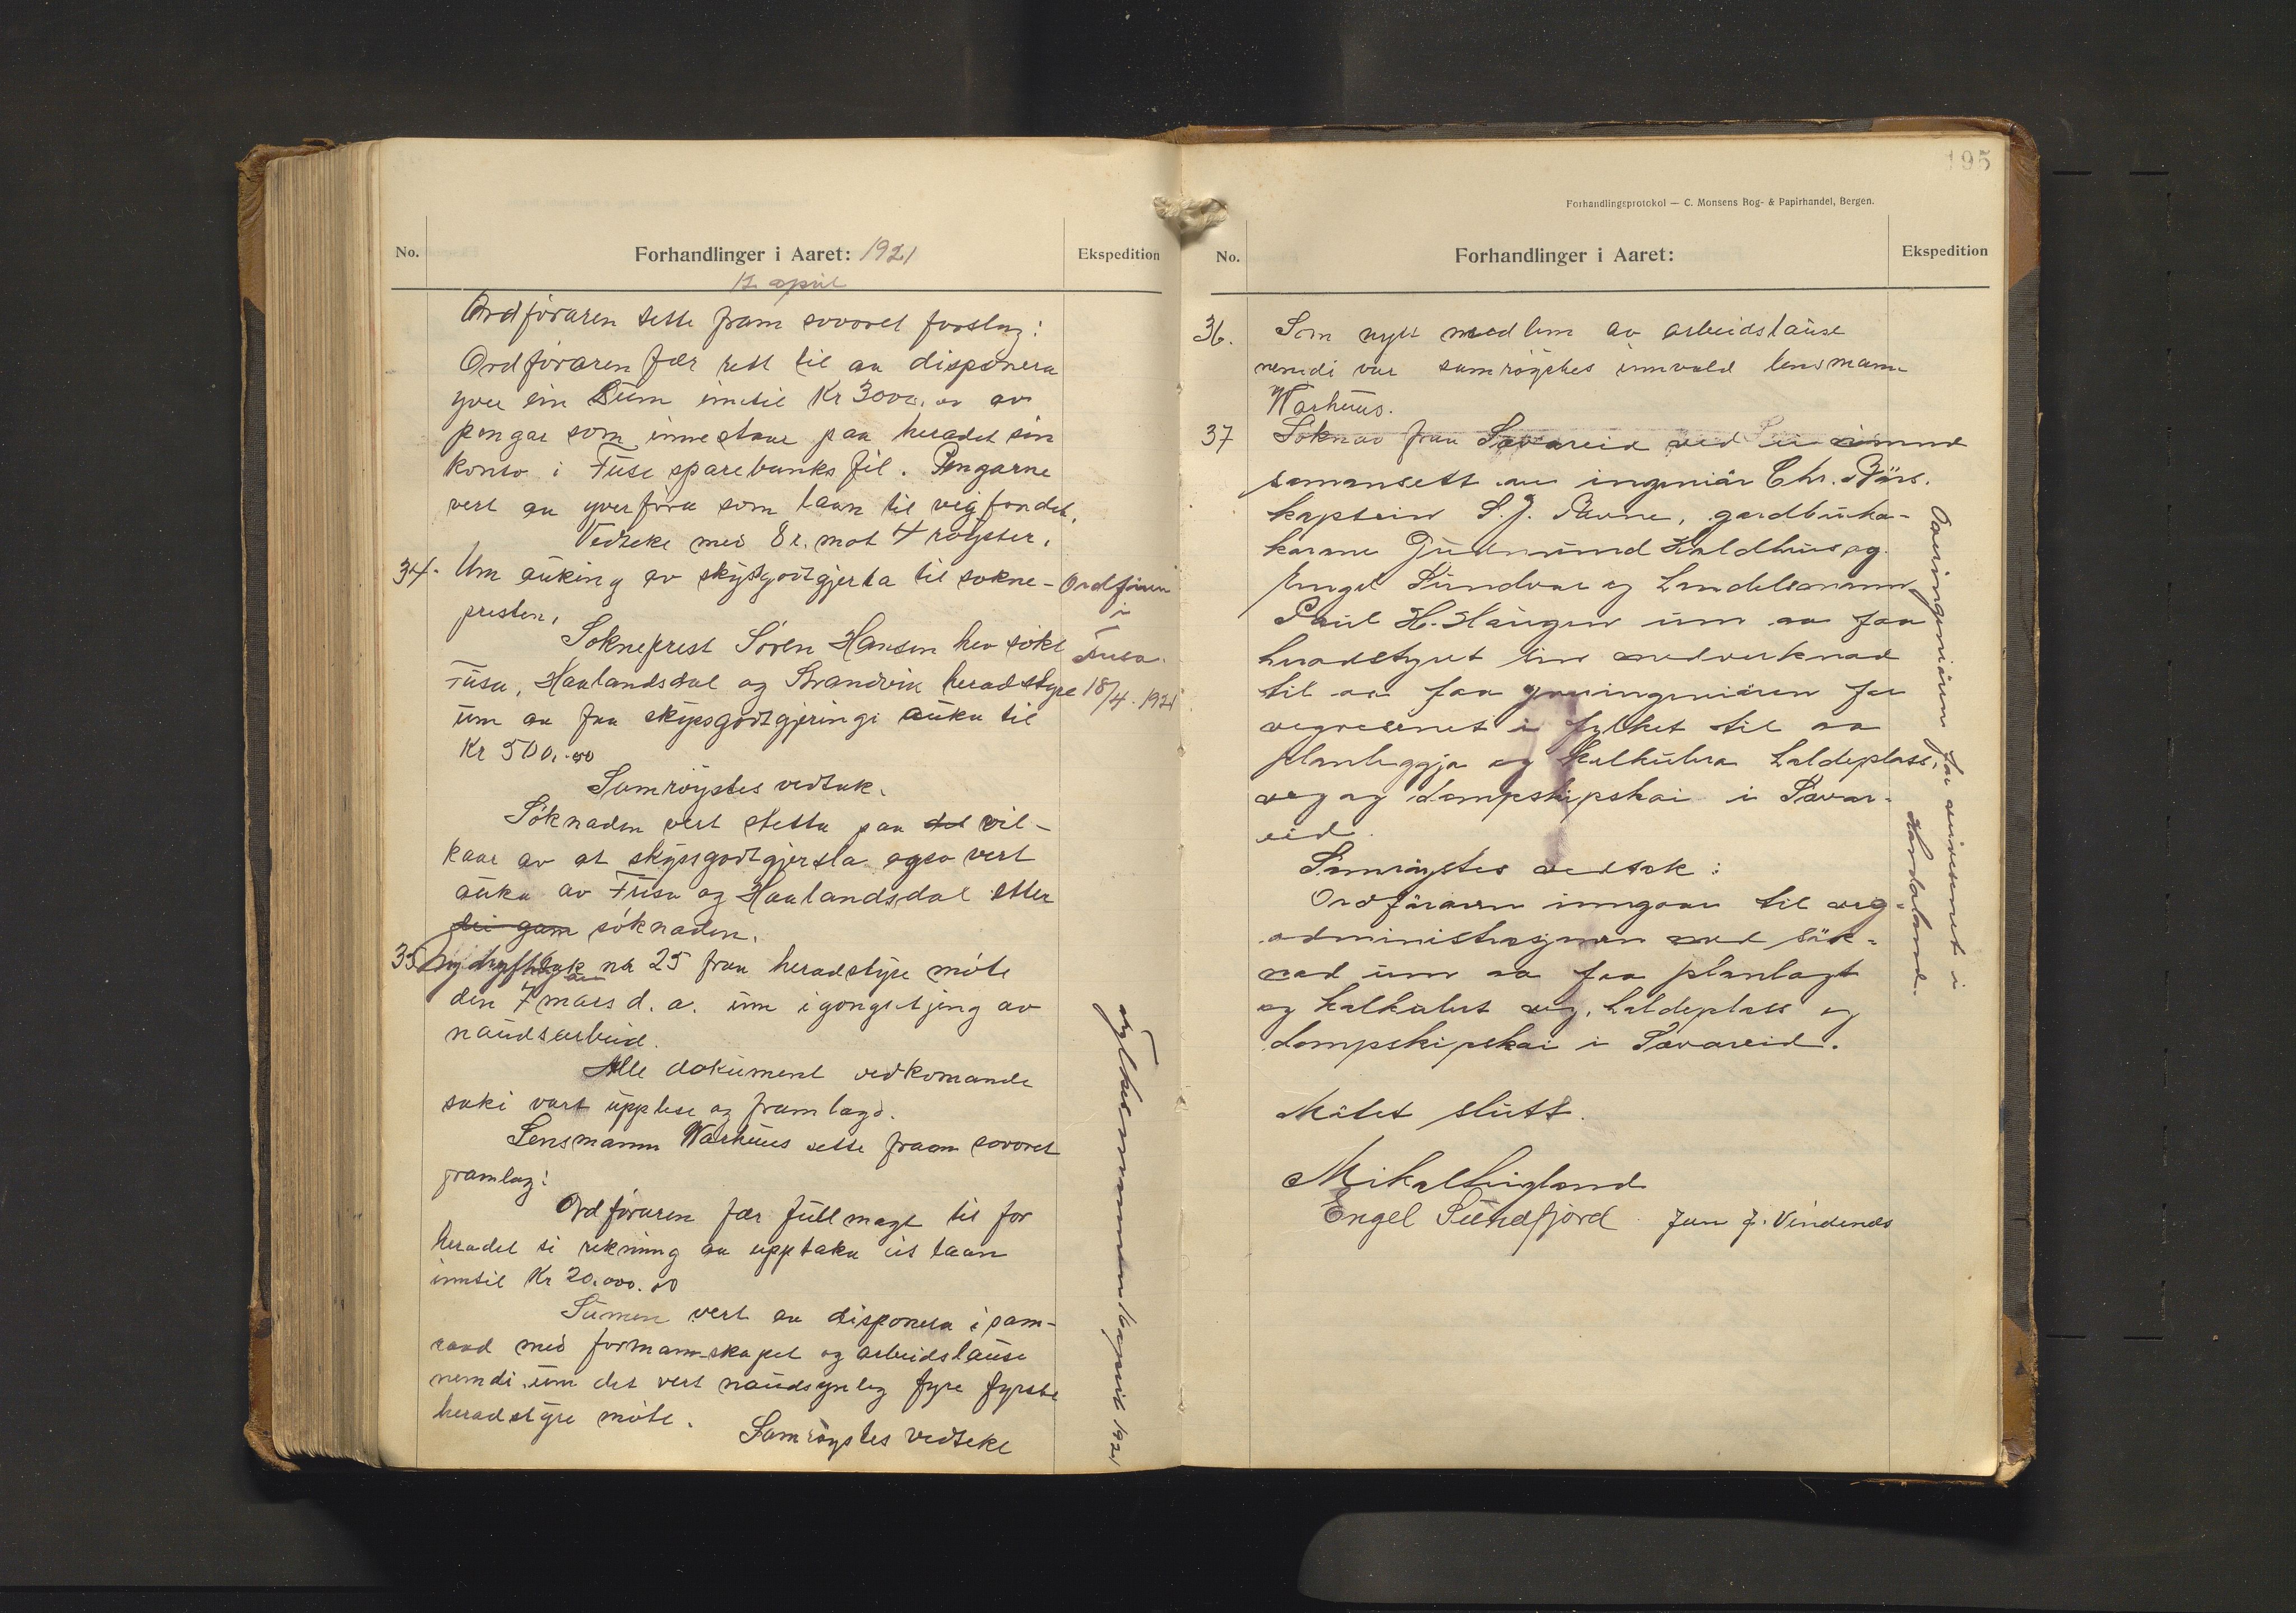 No.
Forhandlinger i Aaret: 1921
12 april
Ekspedition
Ordföraren sette fram sovoret forslag:
Ordföraren fær rett til aa disponera
yver ein Sum inntil Kr 3000.00 av
pengar som innestaar paa heradet sin
konto i Fusa sparebanks fil. Pengarne
vert aa yverföra som laan til vegfondet.
Vedteke med 8 r. mot 4 röyster.
34. Um auking av skyssgodtgjersla til sokne-
presten.
Sokneprest Sören Hansen hev sökt
Fusa, Haalandsdal og Strandvik heradstyre
um aa faa skyssgodtgjeringi auka til
Kr 500.00
Samröystes vedtak.
Söknaden vert stetta paa det vil-
kaar av at skyssgodtgjersla ogso vert
auka av Fusa og Haalandsdal etter
söknaden.
Ordföraren
i
Fusa.
18/4. 1921
35 nr 25 fraa heradstyre möte
den 7 mars d. a. um igongsetjing av
naudsarbeid.
Alle dokument vedkomande
saki vart upplese og framlagd.
Lensmann Warhuus sette fram sovoret
framlag:
Ordföraren fær fullmagt til for
heradet si rekning aa upptaka eit laan
inntil Kr 20.000.00
Sumen vert aa disponera i sam-
raad med formannskapet og arbeidslause
nemdi um det vert naudsynleg fyre fyrste
heradstyre möte.
Samröystes vedteke
1921
195
Forhandlingsprotokol — C. Monsens Bog- & Papirhandel, Bergen.
No.
Forhandlinger i Aaret:
Ekspedition
36. Som nytt medlem av arbeidslause
nemdi var samröystes innvald lensmann
Warhuus.
37 Söknad fraa Sævareid ved ei nemnd
samansett av ingeniör Chr. Börs.
kaptein S. J. Bavne, gardbruka-
karane Gudmund Haldhus og
Engel Sundvor og Landelsmann
Paul H. Haugen um aa faa
heradstyret sin medverknad
til aa faa yveringeniören for
vegvesenet i fylket til aa
planleggja og kalkulera Laldeplass,
veg og dampskipskai i Sævar-
eid.
Samröystes vedtak:
Ordföraren inngaar til veg-
administrasjonen med sök-
nad um aa faa planlagt
og kalkulert veg, Laldeplass og
dampskipskai i Sævareid.
Mötet slutt.
Mikal Lygland
Engel Sundfjord Jan J. Vindenes
Overingeniören for veivesenet i
Hordaland.